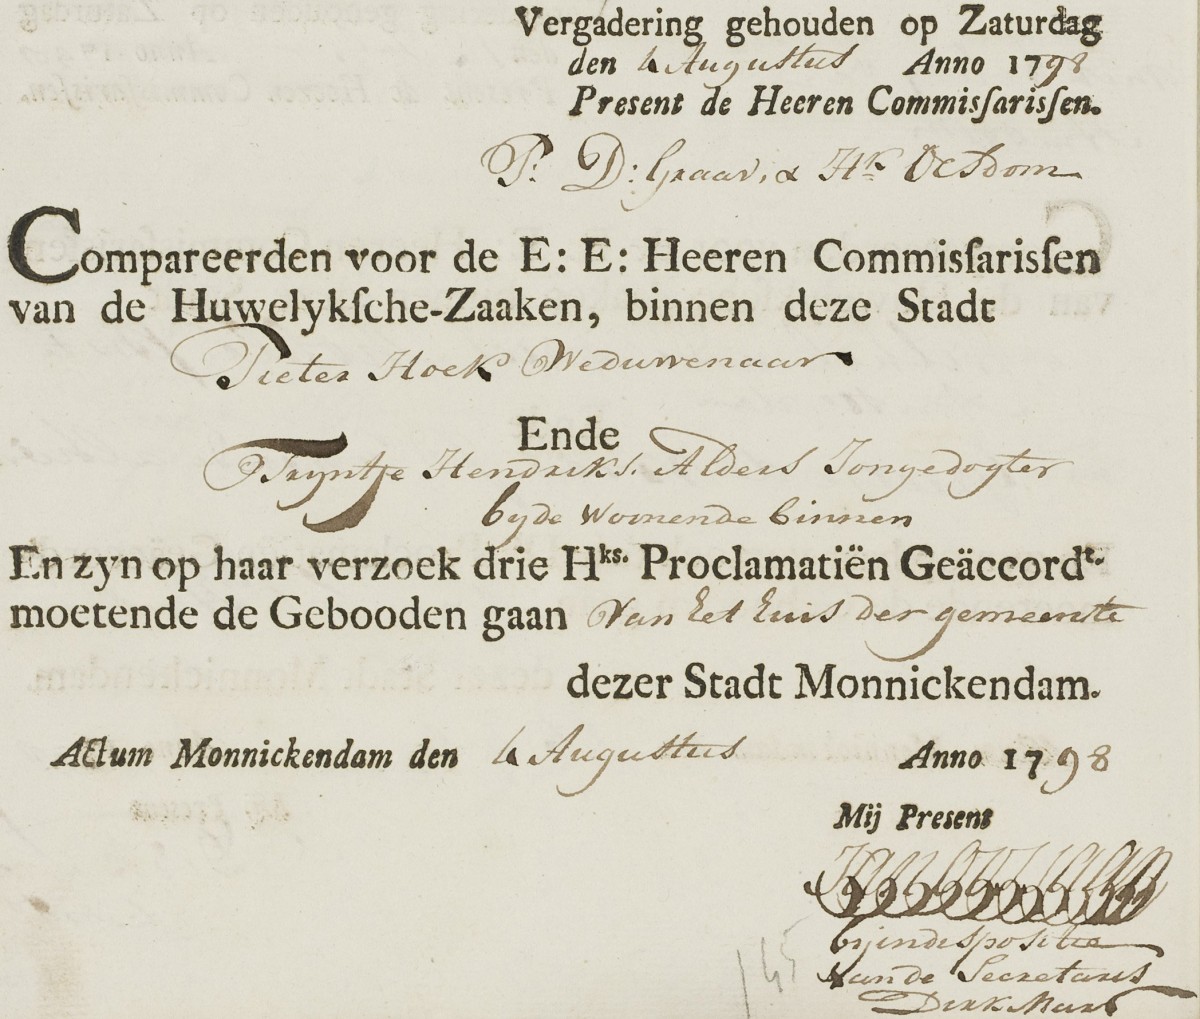 Vergadering gehouden op Zaturdag
den 4 Augustus Anno 1798
Present de Heeren Commisſarisſen.
P. D: Graav, & Hk Oestdom
Compareerden voor de E: E: Heeren Commisſarisſen
van de Huwelykſche-Zaaken, binnen deze Stadt
Pieter Hoek Weduwenaar
Ende
Tryntje Hendriks. Alders Jongedogter
byde woonende binnen
En zyn op haar verzoek drie Hks. Proclamatiën Geäccordt.
moetende de Gebooden gaan van het huis der gemeente
dezer Stadt Monnickendam.
Actum Monnickendam den 4 Augustus Anno 1798
Mij Present
bij indispositie
van de Secretaris
Dirk
145